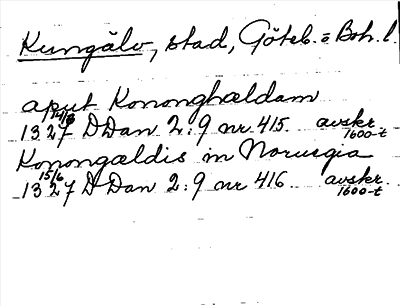 Kungälv, stad, Göteb. o Boh. l.
aput Kononghældam
14/6 1327 DDan 2:9 nr 415. avskr. 1600-t
Konongældis in Noruegia
15/6 1327 DDan 2:9 nr 416 avskr. 1600-t